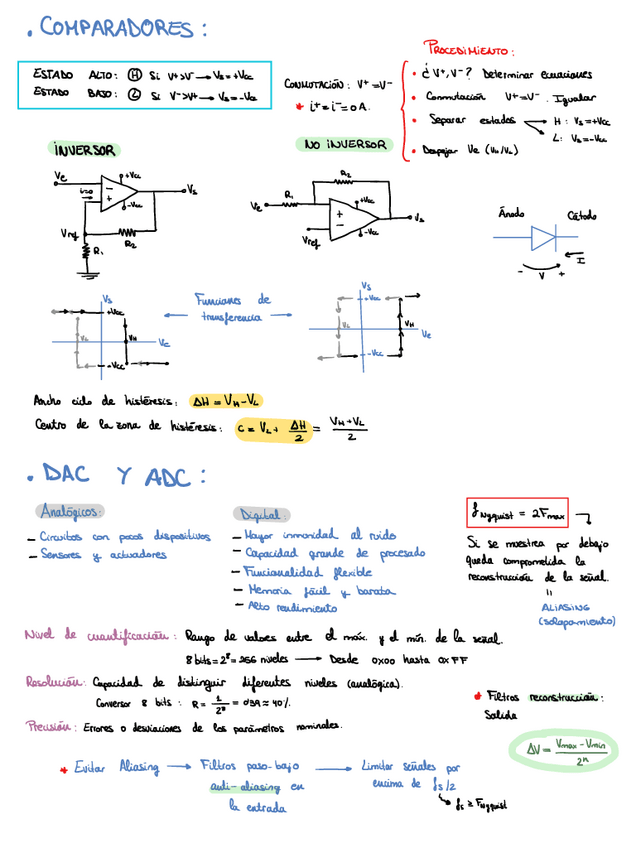 . COMPARADORES :
ESTADO ALTO : (H) Si V+>V- → Vs=+Vcc
ESTADO BAJO : (L) Si V->V+ → Vs=-Vcc
CONMUTACIÓN : V+ = V-
* i+ = i- = 0 A.
PROCEDIMIENTO :
• ¿V+, V-? Determinar ecuaciones
• Conmutación V+=V-. Igualar
• Separar estados → H : Vs=+Vcc
→ L : Vs=-Vcc
• Despejar Ve (VH/VL)
INVERSOR
NO INVERSOR
Ve
i=0
+Vcc
-Vcc
Vs
Vref
R1
R2
Ve
R1
R2
+Vcc
-Vcc
Vs
Vref
Ánodo
Cátodo
I
- V +
Vs
+Vcc
VL
VH
Ve
-Vcc
Funciones de
transferencia
Vs
+Vcc
VL
VH
Ve
-Vcc
Ancho ciclo de histéresis : ΔH = VH-VL
Centro de la zona de histéresis : c = VL + ΔH/2 = VH+VL/2
. DAC Y ADC :
Analógicos:
- Circuitos con pocos dispositivos
- Sensores y actuadores
Digital:
- Mayor inmunidad al ruido
- Capacidad grande de procesado
- Funcionalidad flexible
- Memoria fácil y barata
- Alto rendimiento
fNyquist = 2Fmax
Si se muestrea por debajo
queda comprometida la
reconstrucción de la señal.
"
ALIASING
(solapamiento)
Nivel de cuantificación : Rango de valores entre el máx. y el mín. de la señal.
8 bits = 2^8 = 256 niveles → Desde 0x00 hasta 0xFF
Resolución: Capacidad de distinguir diferentes niveles (analógica).
Conversor 8 bits : R = 1/2^8
Precisión: Errores o desviaciones de los parámetros nominales.
* Filtros reconstrucción :
Salida
ΔV = Vmax - Vmin / 2^n
* Evitar Aliasing → Filtros paso-bajo → Limitar señales por
anti-aliasing en encima de fs/2
la entrada fs ≥ FNyquist